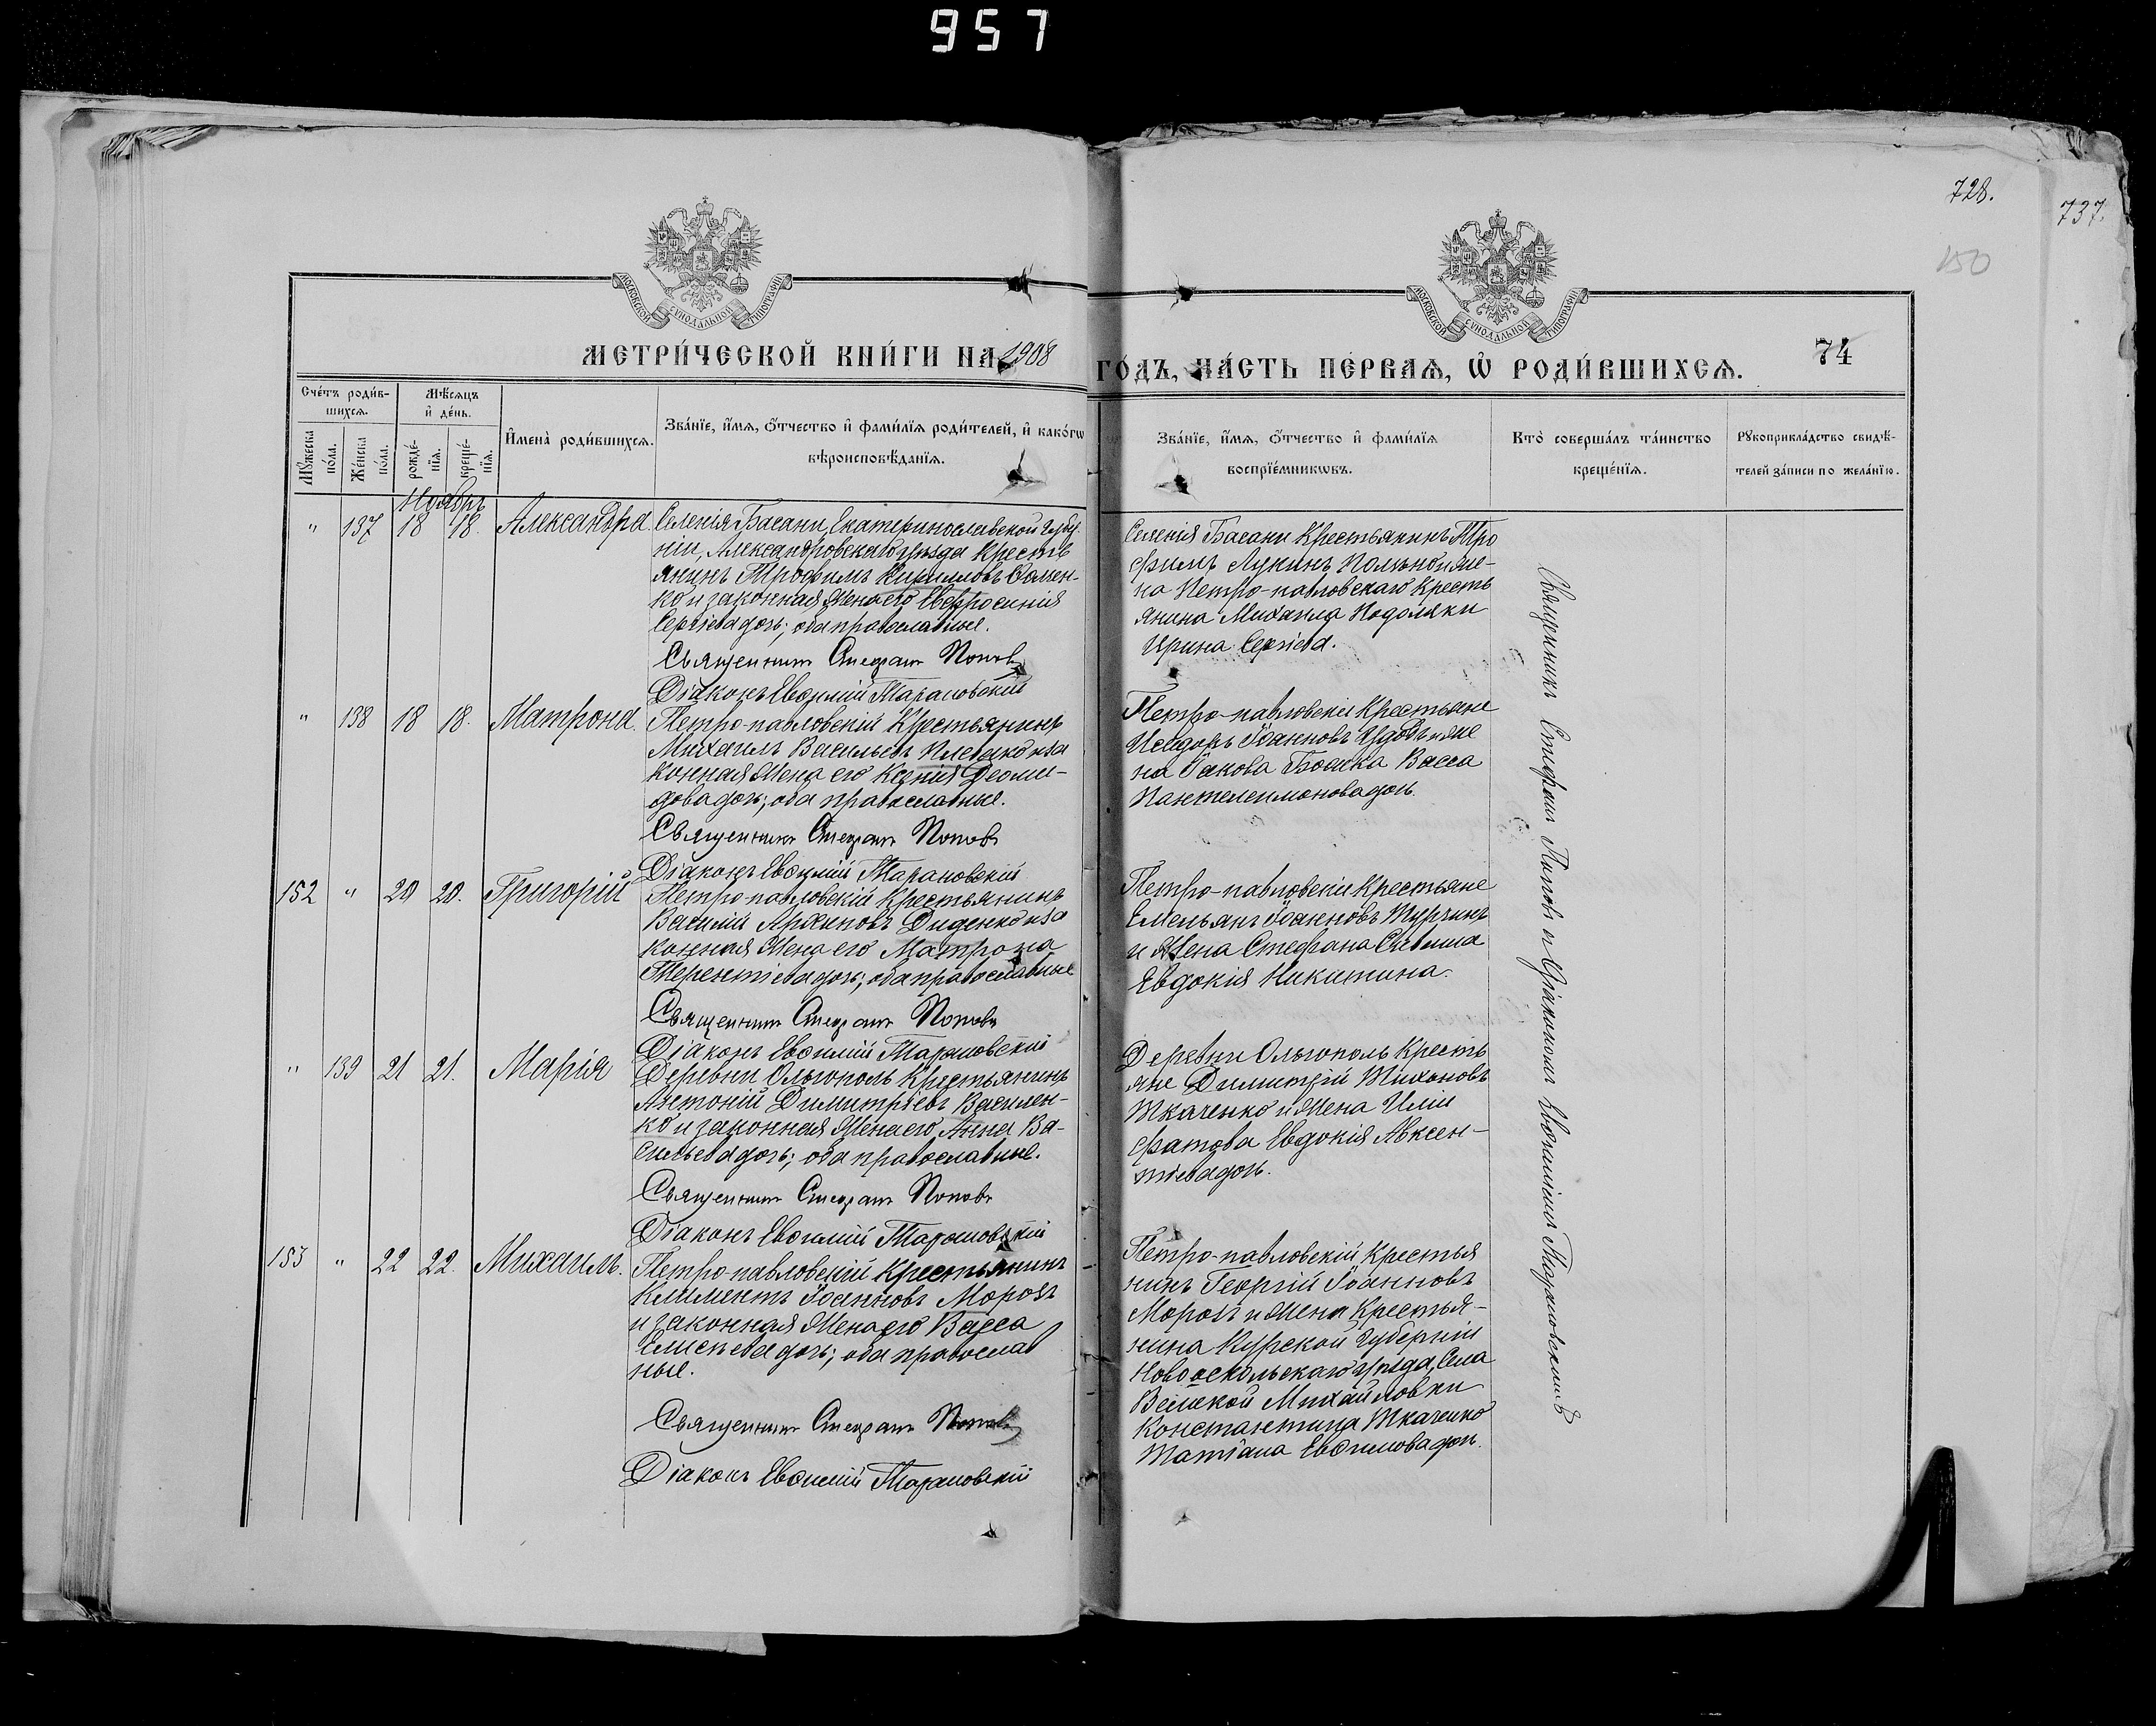 957
728.
737.
150
МОСКОВСКОЙ СѴНОДАЛЬНОЙ ТИПОГРАФІИ
МОСКОВСКОЙ СѴНОДАЛЬНОЙ ТИПОГРАФІИ
МЕТРИ́ЧЕСКОЙ КНИ́ГИ НА 1908
ГО́ДЪ, ЧА́СТЬ ПЕ́РВАѦ, Ѡ҆ РОДИ́ВШИХСѦ.
74
Сче́тъ роди́в-
шихсѧ.
Мѣ́сѧцъ
и҆ де́нь.
Мꙋ́жеска
по́ла.
Же́нска
по́ла.
рожде́-
нїѧ.
креще́-
нїѧ.
И҆мена̀ роди́вшихсѧ.
Зва́нїе, и҆́мѧ, ѻ҆́тчество и҆ фами́лїѧ роди́телей, и҆ како́гѡ
вѣроисповѣ́данїѧ.
Зва́нїе, и҆́мѧ, ѻ҆́тчество и҆ фами́лїѧ
воспрїе́мникѡвъ.
Кто̀ соверша́лъ та́инство
креще́нїѧ.
Рꙋкоприкла́дство свидѣ́-
телей за́писи по жела́нїю.
Ноябрь
" 137 18 18. Александра. Селенія Басани, Екатеринославской губер-
ніи, Александровскаго уѣзда Кресть
янинъ Трофимъ Кирилловъ
ко и законная жена его Евфросинія
Сергіева дочь; оба православные.
Священникъ Стефанъ Поповъ
Діаконъ Евѳимій Тарановскій
Селенія Басани Крестьянинъ Тро
фимъ Лукинъ и же-
на Петро-павловскаго Кресть
янина Михаила Подоляки
Ирина Сергіева.
" 138 18 18. Матрона. Петро-павловскій Крестьянинъ
Михаилъ Васильевъ Плевако и за
конная жена его Ксенія Деоми-
дова дочь; оба православные.
Священникъ Стефанъ Поповъ
Діаконъ Евѳимій Тарановскій
Петро-павловскіе Крестьяне
Исидоръ Іоанновъ и же
на Іакова Васса
Пантелеимонова дочь.
152 " 20 20. Григорій Петро-павловскій Крестьянинъ
Василій Архиповъ Диденко и за
конная жена его Матрона
Терентіева дочь; оба православные
Священникъ Стефанъ Поповъ
Діаконъ Евѳимій Тарановскій
Петро-павловскіе Крестьяне
Емельянъ Іоанновъ Турчинъ
и жена Стефана
Евдокія Никитина.
" 139 21 21. Марія Деревни Ольгополь Крестьянинъ
Антоній Димитріевъ Василен-
ко и законная жена его Анна Ва-
сильева дочь; оба православные.
Священникъ Стефанъ Поповъ
Діаконъ Евѳимій Тарановскій
Деревни Ольгополь Кресть
яне Димитрій Тихоновъ
Ткаченко и жена Иліи
Фатова Евдокія Авксен-
тіева дочь.
153 " 22 22. Михаилъ. Петро-павловскій Крестьянинъ
Климентъ Іоанновъ Морозъ
и законная жена его Васса
Елисеева дочь; оба православ
ные.
Священникъ Стефанъ Поповъ
Діаконъ Евѳимій Тарановскій
Петро-павловскій Крестья
нинъ Георгій Іоанновъ
Морозъ и жена Крестья-
нина Курской губерніи
Новооскольскаго уѣзда, Села
Великой Михайловки
Константина Ткаченко
Татіана Евѳимова дочь.
Священникъ Стефанъ Поповъ и Діакономъ Евѳиміемъ Тарановскимъ